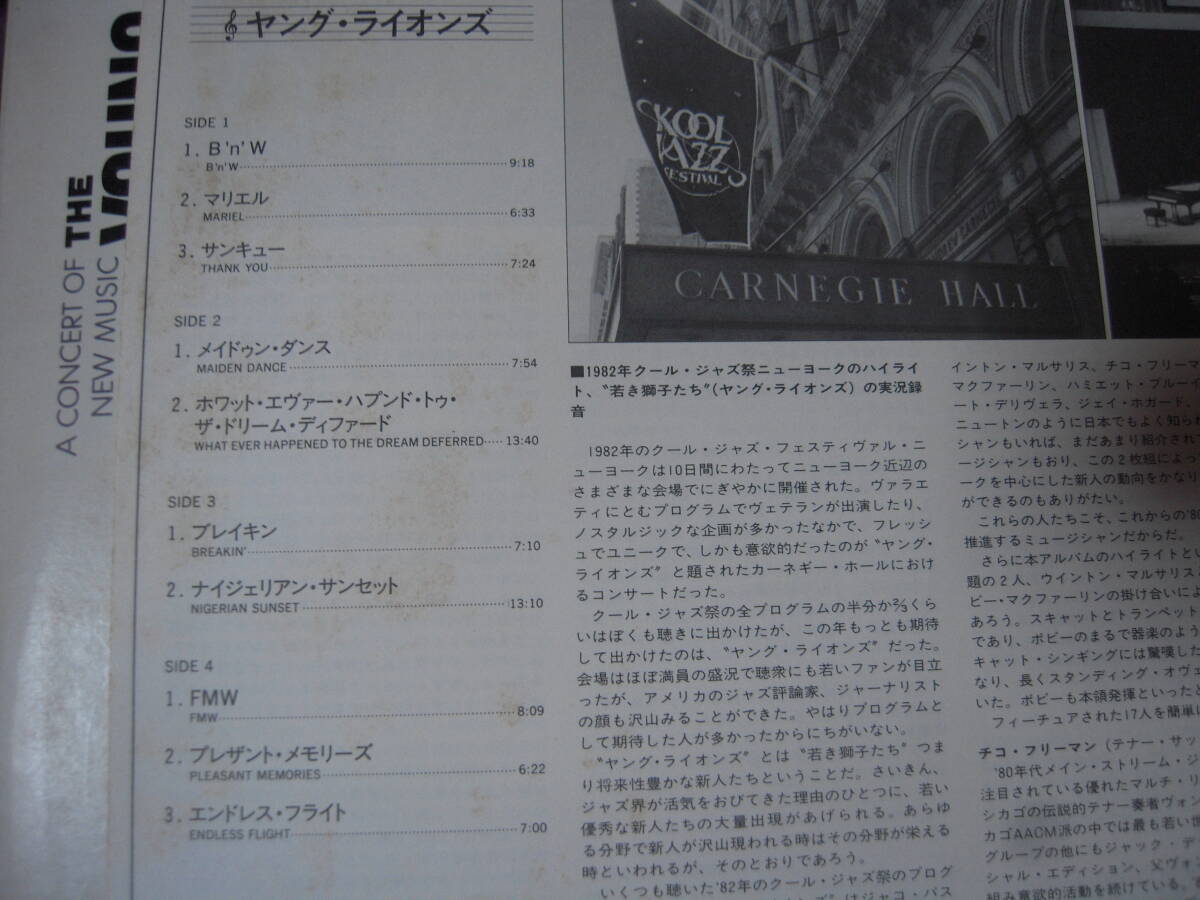 A CONCERT OF THE
NEW MUSIC YOUNG
ヤング・ライオンズ
SIDE 1
1. B'n'W
B'n'W 9:18
2. マリエル
MARIEL 6:33
3. サンキュー
THANK YOU 7:24
SIDE 2
1. メイドゥン・ダンス
MAIDEN DANCE 7:54
2. ホワット・エヴァー・ハプンド・トゥ・
ザ・ドリーム・ディファード
WHAT EVER HAPPENED TO THE DREAM DEFERRED 13:40
SIDE 3
1. ブレイキン
BREAKIN' 7:10
2. ナイジェリアン・サンセット
NIGERIAN SUNSET 13:10
SIDE 4
1. FMW
FMW 8:09
2. プレザント・メモリーズ
PLEASANT MEMORIES 6:22
3. エンドレス・フライト
ENDLESS FLIGHT 7:00
KOOL
JAZZ
FESTIVAL
CARNEGIE HALL
■1982年クール・ジャズ祭ニューヨークのハイライ
ト、〝若き獅子たち〟(ヤング・ライオンズ)の実況録
音
1982年のクール・ジャズ・フェスティヴァル・ニ
ューヨークは10日間にわたってニューヨーク近辺の
さまざまな会場でにぎやかに開催された。ヴァラエ
ティにとむプログラムでヴェテランが出演したり、
ノスタルジックな企画が多かったなかで、フレッシ
ュでユニークで、しかも意欲的だったのが〝ヤング・
ライオンズ〟と題されたカーネギー・ホールにおけ
るコンサートだった。
クール・ジャズ祭の全プログラムの半分か⅔くら
いはぼくも聴きに出かけたが、この年もっとも期待
して出かけたのは、〝ヤング・ライオンズ〟だった。
会場はほぼ満員の盛況で聴衆にも若いファンが目立
ったが、アメリカのジャズ評論家、ジャーナリスト
の顔も沢山みることができた。やはりプログラムと
して期待した人が多かったからにちがいない。
〝ヤング・ライオンズ〟とは〝若き獅子たち〟つま
り将来性豊かな新人たちということだ。さいきん、
ジャズ界が活気をおびてきた理由のひとつに、若い
優秀な新人たちの大量出現があげられる。あらゆ
る分野で新人が沢山現われる時はその分野が栄える
時といわれるが、そのとおりであろう。
いくつも聴いた'82年のクール・ジャズ祭のプログ
はジャコ・パス
イントン・マルサリス、チコ・フリーマ
マクファーリン、ハミエット・ブルーイ
ート・デリヴェラ、ジェイ・ホガード、
ニュートンのように日本でもよく知られ
シャンもいれば、まだあまり紹介され
ージシャンもおり、この2枚組によっ
ークを中心にした新人の動向をかなり
ができるのもありがたい。
これらの人たちこそ、これからの'80
推進するミュージシャンだからだ。
さらに本アルバムのハイライトとい
題の2人、ウイントン・マルサリス
ビー・マクファーリンの掛け合いによ
あろう。スキャットとトランペット
であり、ボビーのまるで器楽のよう
キャット・シンギングには驚嘆した
なり、長くスタンディング・オヴェ
いた。ボビーも本領発揮といった
フィーチュアされた17人を簡単に
チコ・フリーマン(テナー・サッ
'80年代メイン・ストリーム・ジ
注目されている優れたマルチ・リ
シカゴの伝説的テナー奏者ヴォン
カゴAACM派の中では最も若い世
グループの他にもジャック・デ
シャル・エディション、父ヴォ
組み意欲的活動を続けている。